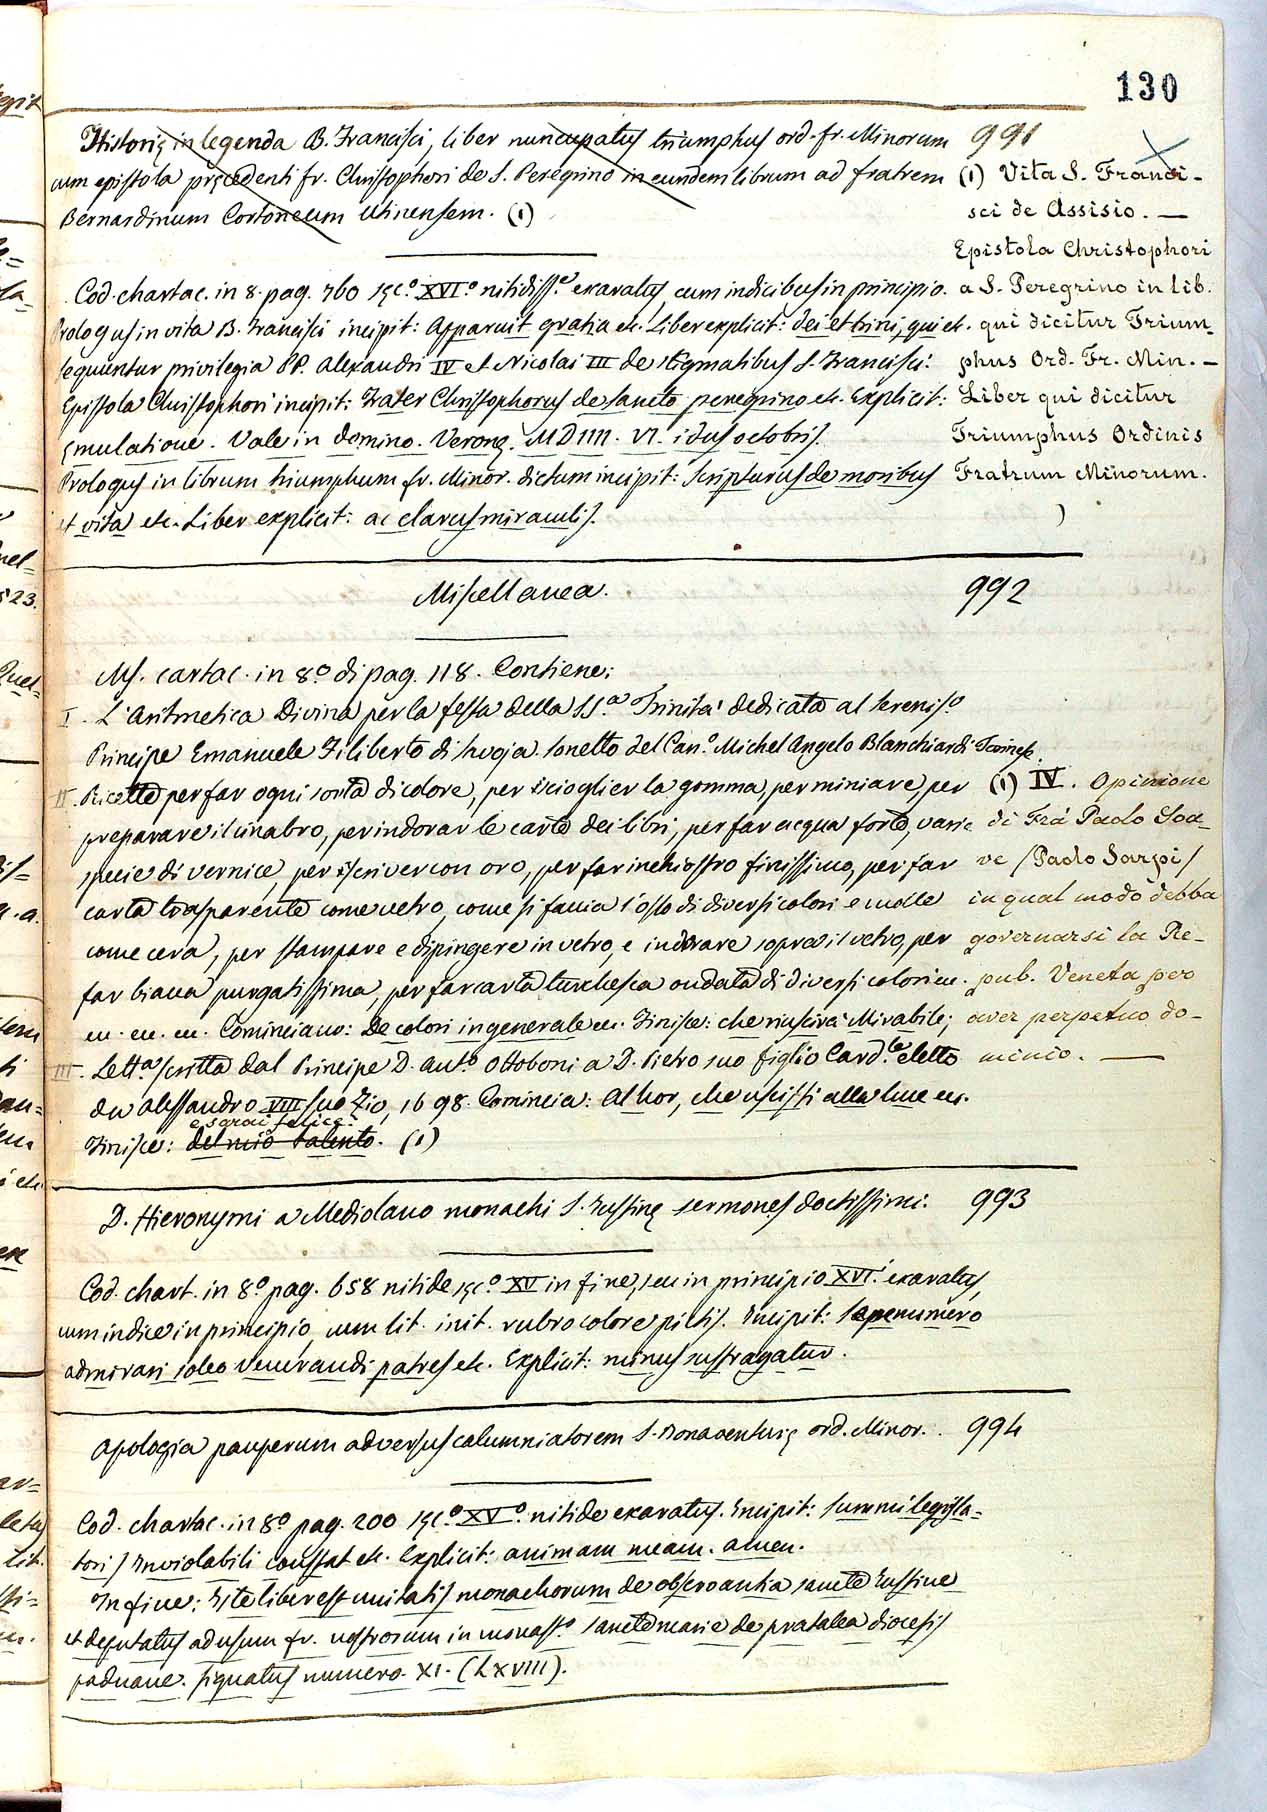 130
Historię in legenda B. Francisci, liber nuncupatus triumphus ord. fr. Minorum
cum epistola pręcedenti fr. Christophori de S. Peregrino in eundem librum ad fratrem
Bernardinum Cortoneum Utinensem. (1)
991
(1) Vita S. Franci-
sci de Assisio. —
Epistola Christophori
a S. Peregrino in lib.
qui dicitur Trium-
phus Ord. Fr. Min. —
Liber qui dicitur
Triumphus Ordinis
Fratrum Minorum.
Cod. chartac. in 8. pag. 760 sęc.º XVI.º nitidiss.e exaratus, cum indicibus in principio.
Prologus in vita B. Francisci incipit: Apparuit gratia etc. Liber explicit: dei et trini, qui etc.
sequuntur privilegia PP. Alexandri IV et Nicolai III de stigmatibus S. Francisci.
Epistola Christophori incipit: Frater Christophorus de sancto peregrino etc. Explicit:
ęmulatione. Vale in domino. Veronę. MDIIII. VI. idus octobris.
Prologus in librum triumphum fr. Minor. dictum incipit: Scripturus de moribus
et vita etc. Liber explicit: ac clarus miraculis.
Miscellanea.
992
Ms. cartac. in 8.º di pag. 118. Contiene:
I. L'Aritmetica Divina per la festa della SS.a Trinità dedicata al Sereniss.º
Principe Emanuele Filiberto di Savoja. Sonetto del Can.º Michel Angelo Blanchiardi Torinese.
II. Ricette per far ogni sorta di colore, per iscioglier la gomma, per miniare, per
preparare il cinabro, per indorar le carte dei libri, per far acqua forte, varie
specie di vernice, per iscriver con oro, per far inchiostro finissimo, per far
carta trasparente come vetro, come si faccia l'osso di diversi colori e molle
come cera, per stampare e dipingere in vetro, e indorare sopra il vetro, per
far biacca purgatissima, per far carta turchesca ondata di diversi colori ec.
ec. ec. ec. Cominciano: De colori in generale ec. Finisce: che riuscirà Mirabile;
III. Lett.a scritta dal Principe D. Ant.º Ottoboni a D. Pietro suo figlio Card.le eletto
da Alessandro VIII suo Zio, 1698. Comincia: Al hor, che uscissi alla luce ec.
e sarai felice.
Finisce: del mio talento. (1)
(1) IV. Opinione
di Frà Paolo Soa-
ve (Paolo Sarpi)
in qual modo debba
governarsi la Re-
pub. Veneta per
aver perpetuo do-
minio. —
D. Hieronymi a Mediolano monachi S. Justinę sermones doctissimi.
993
Cod. chart. in 8.º pag. 658 nitide sęc.º XV in fine, seu in principio XVI. exaratus,
cum indice in principio, cum lit. init. rubro colore pictis. Incipit: Sepenumero
admirari soleo venerandi patres etc. Explicit: minus suffragatur.
Apologia pauperum adversus calumniatorem S. Bonaventurę ord. Minor.
994
Cod. chartac. in 8.º pag. 200 sęc.º XV.º nitide exaratus. Incipit: Summi legisla-
toris Inviolabili constat etc. Explicit: animam meam. amen.
In fine: Iste liber est unitatis monachorum de observantia sancte Justine
et deputatus ad usum fr. nostrorum in monast.º sancte marie de pratalea diocesis
paduane. signatus numero. XI. (LXVIII).